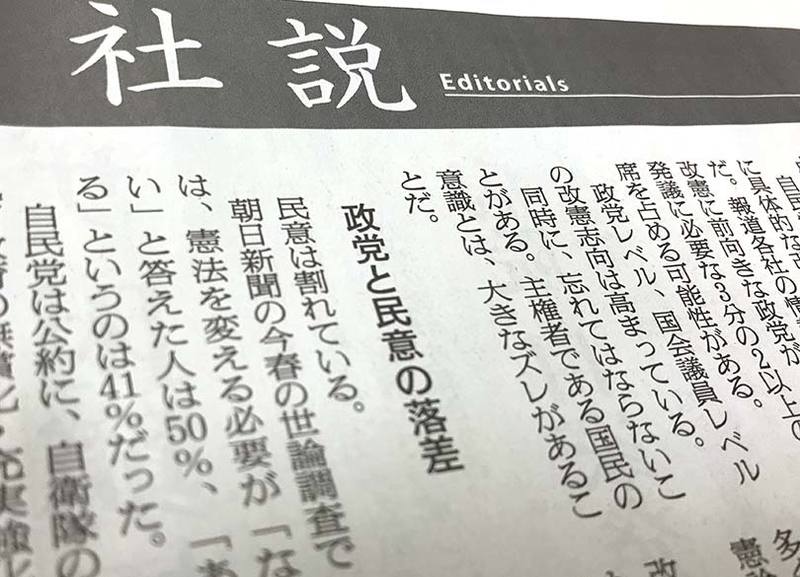 社説
Editorials
に具体的な
だ。報道各社の情
改憲に前向きな政党が
発議に必要な3分の2以上で
席を占める可能性がある。
政党レベル、国会議員レベル
の改憲志向は高まっている。
同時に、忘れてはならないこ
とがある。主権者である国民の
意識とは、大きなズレがあるこ
とだ。
政党と民意の落差
民意は割れている。
朝日新聞の今春の世論調査で
は、憲法を変える必要が「な
い」と答えた人は50%、「あ
る」というのは41%だった。
自民党は公約に、自衛隊の
多く
憲
改